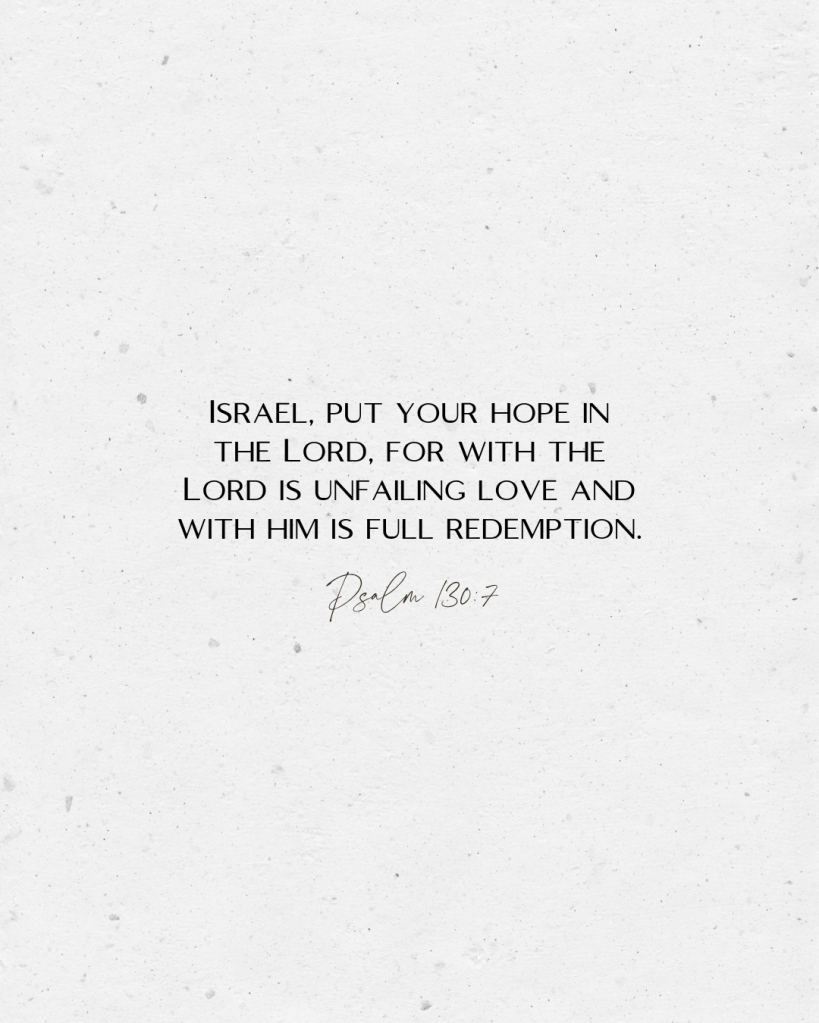 Israel, put your hope in
the Lord, for with the
Lord is unfailing love and
with him is full redemption.
Psalm 130:7